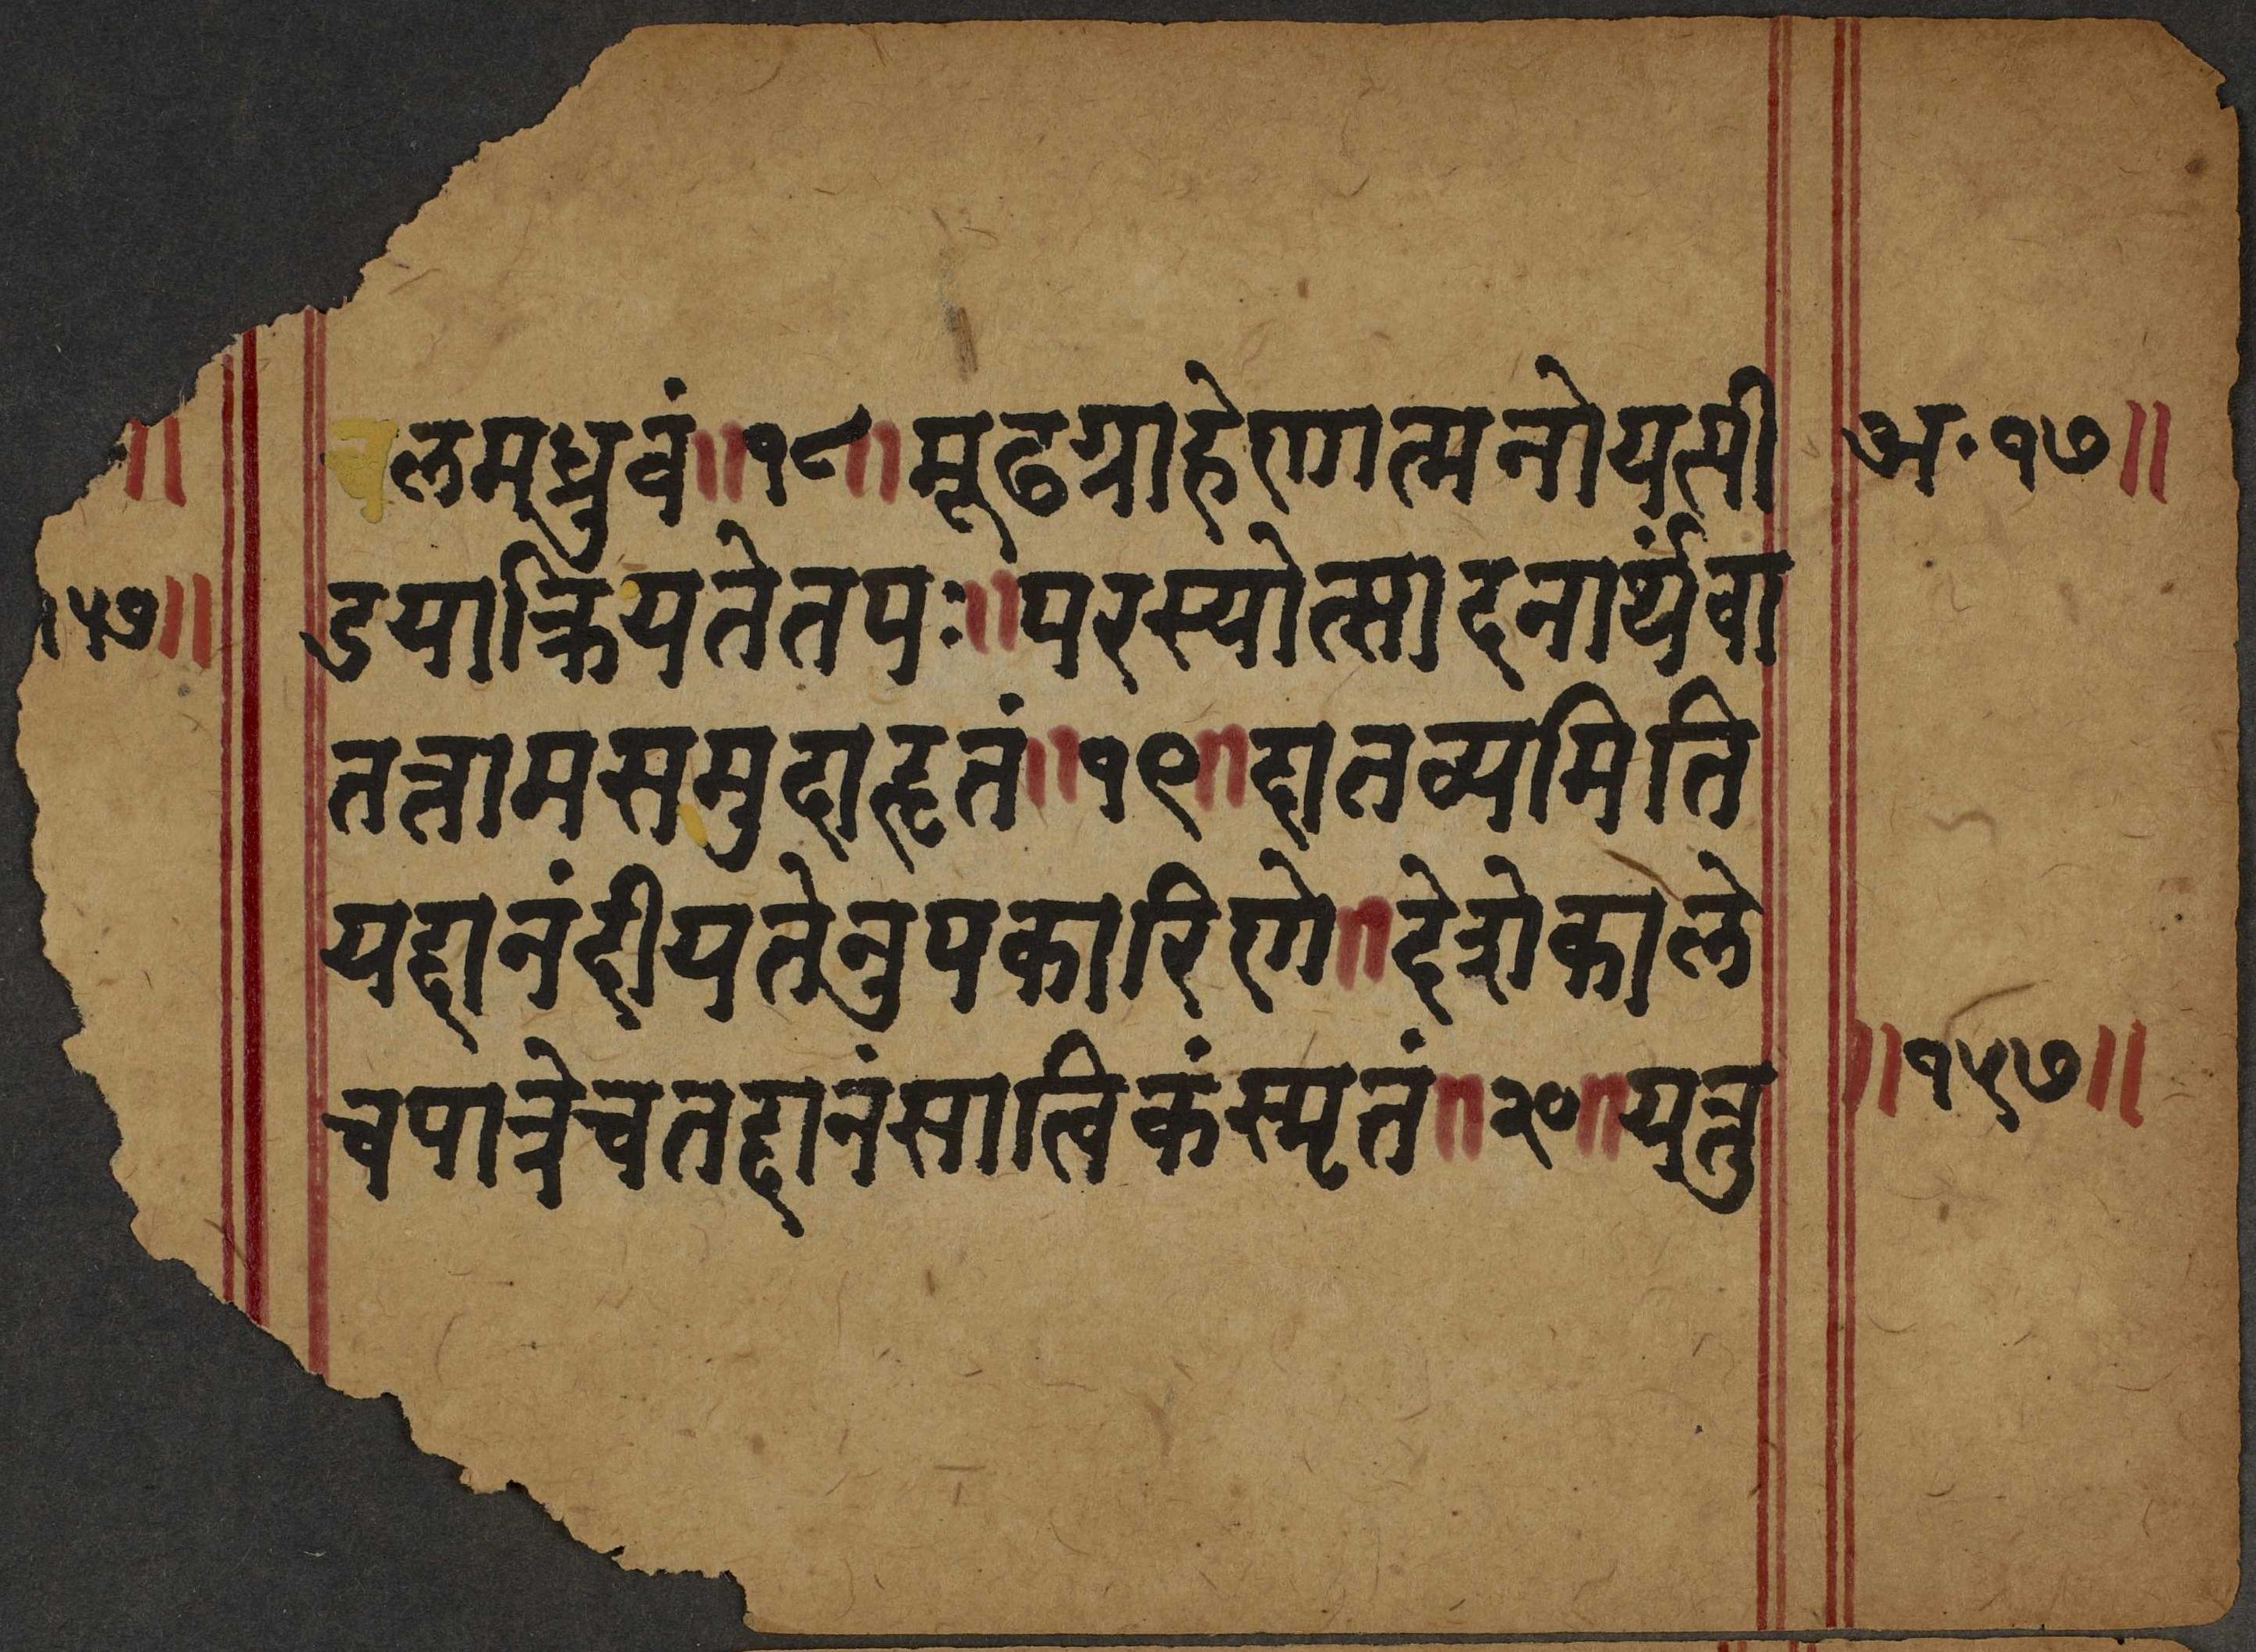 लमध्रुवं॥१८॥मूढग्राहेणात्मनोयत्पी अ·१७॥
डयाक्रियतेतपः॥परस्योत्सादनार्थंवा १५७॥
तत्तामसमुदाहृतं॥१९॥दातव्यमिति
यद्दानंदीयतेनुपकारिणे॥देशेकाले
चपात्रेचतद्दानंसात्विकंस्मृतं॥२०॥यत्तु ॥१५७॥